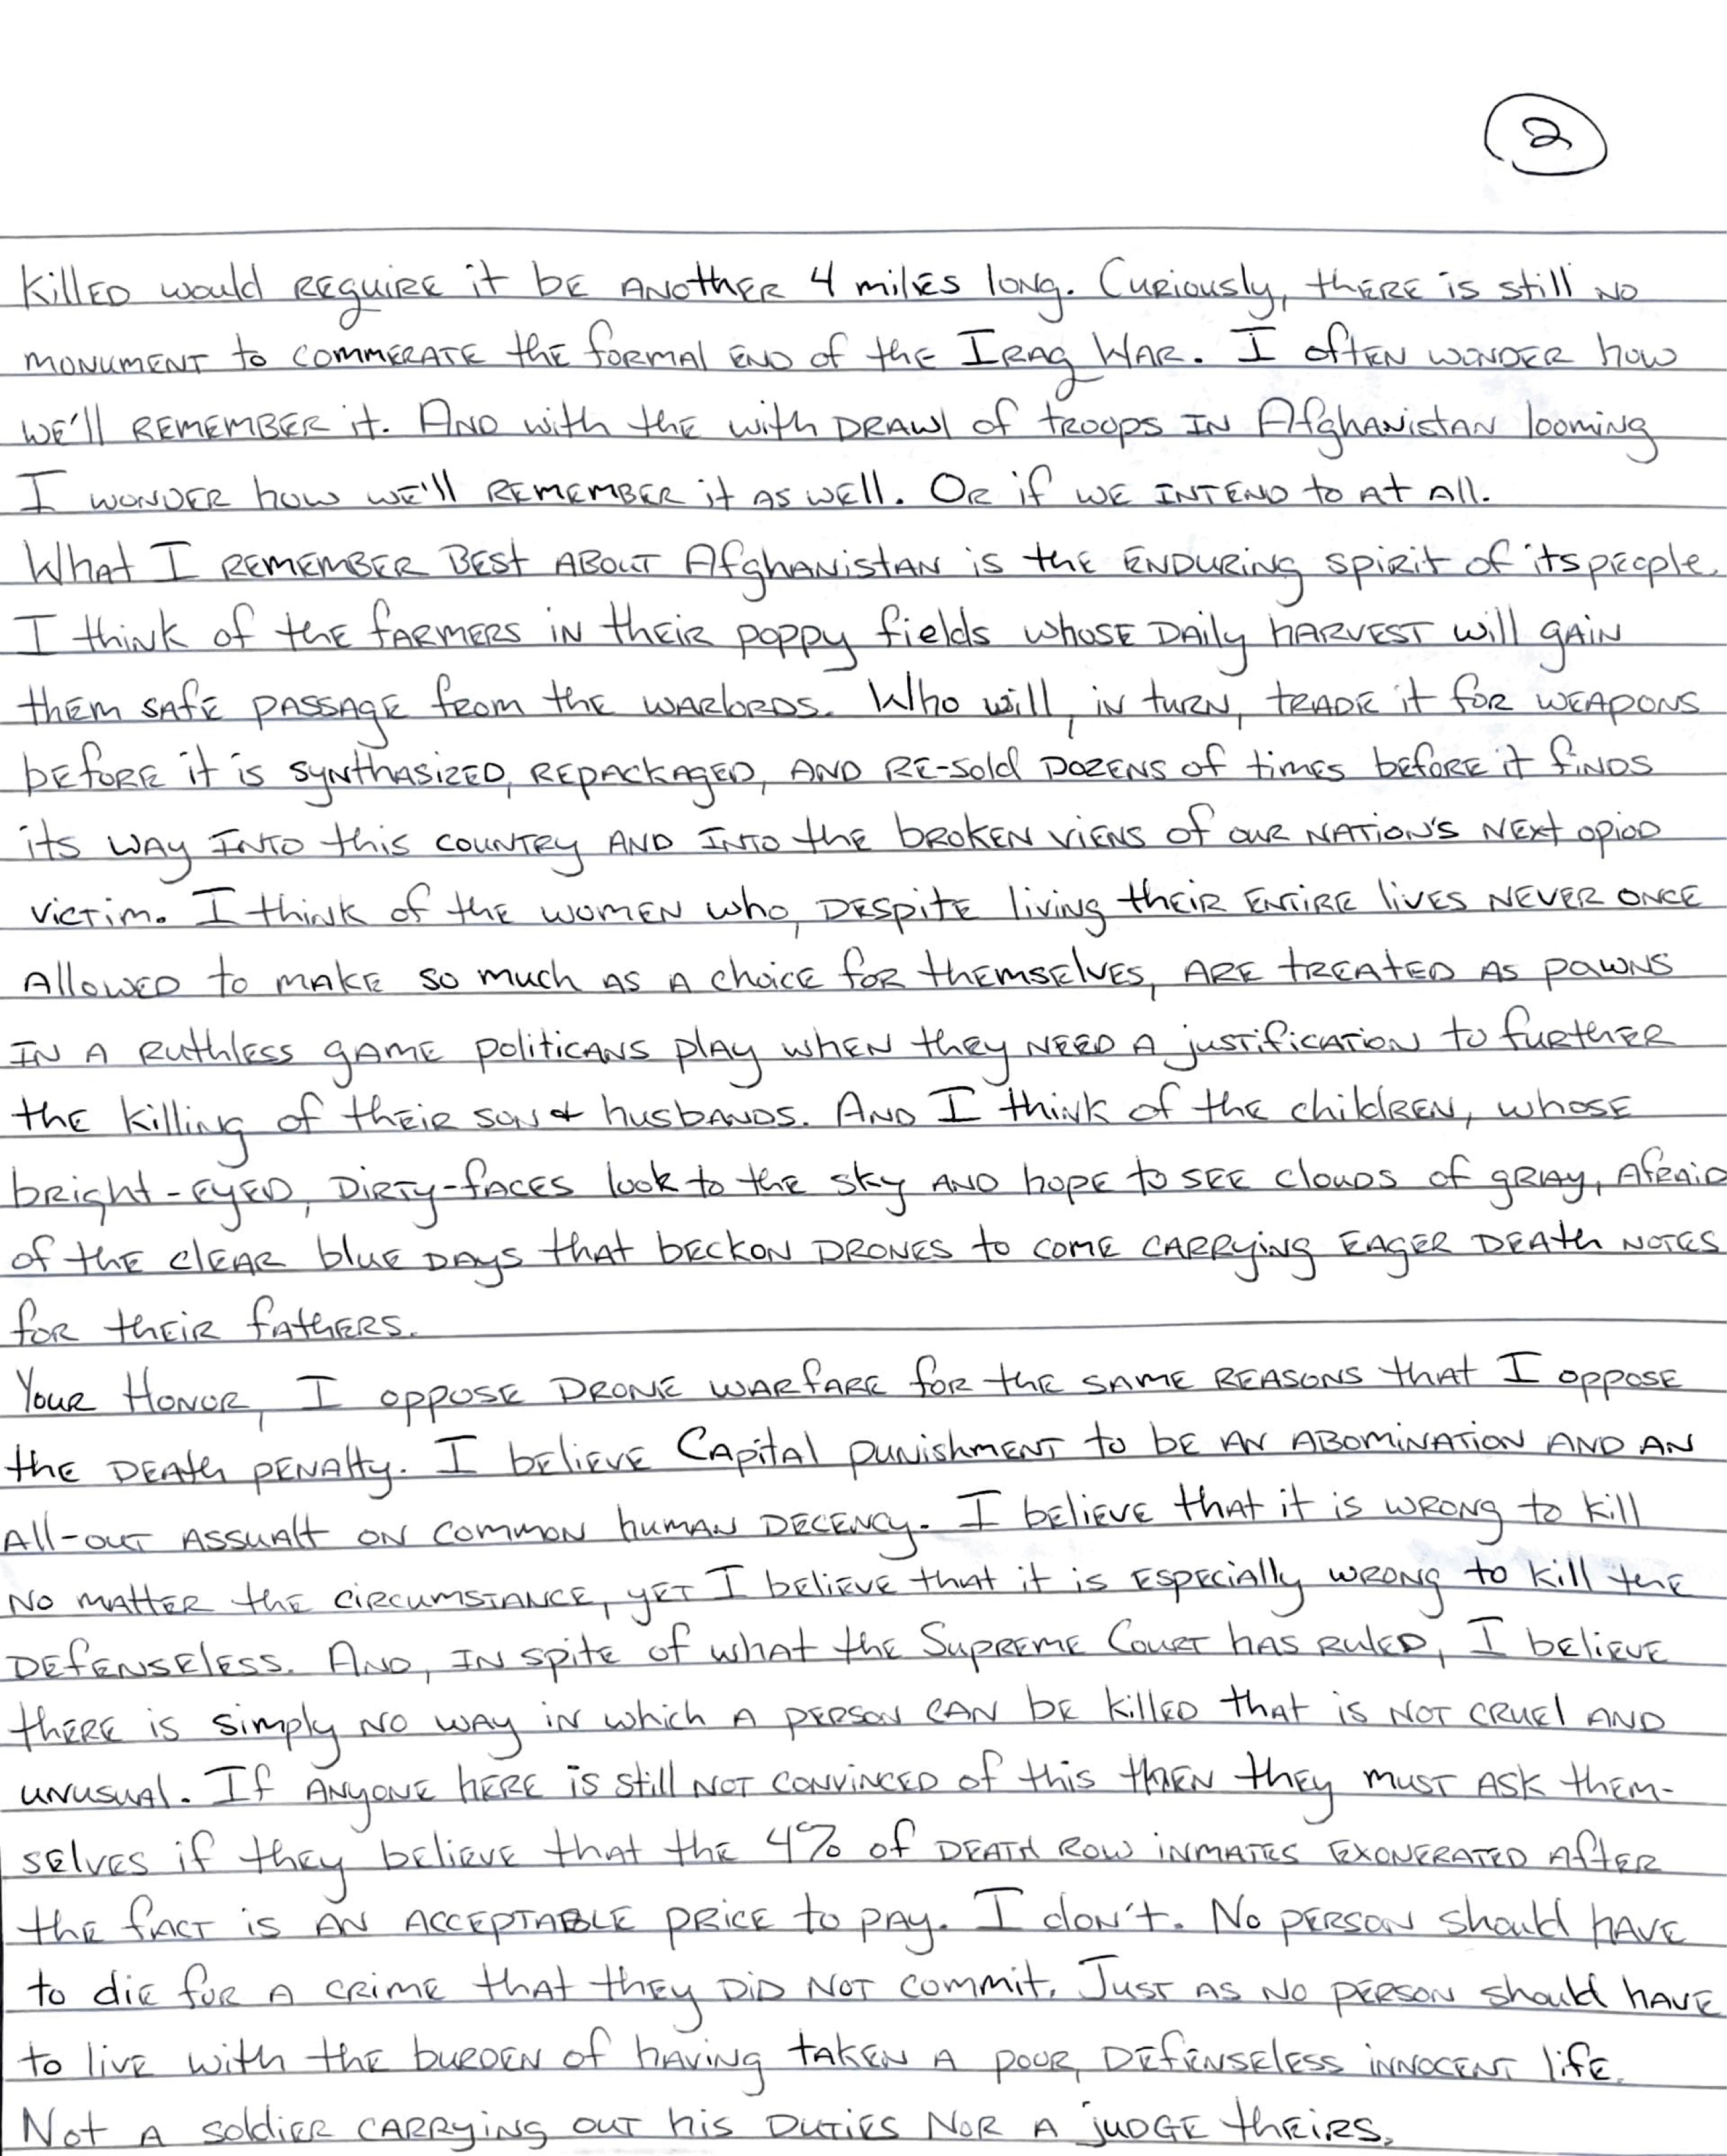 2
killed would require it be another 4 miles long. Curiously, there is still no
monument to commerate the formal end of the Iraq War. I often wonder how
we'll remember it. And with the with drawl of troops in Afghanistan looming
I wonder how we'll remember it as well. Or if we intend to at all.
What I remember best about Afghanistan is the enduring spirit of its people.
I think of the farmers in their poppy fields whose daily harvest will gain
them safe passage from the warlords. Who will, in turn, trade it for weapons
before it is synthasized, repackaged, and re-sold dozens of times before it finds
its way into this country and into the broken viens of our nation's next opiod
victim. I think of the women who, despite living their entire lives never once
allowed to make so much as a choice for themselves, are treated as pawns
in a ruthless game politicans play when they need a justification to further
the killing of their son & husbands. And I think of the children, whose
bright-eyed, dirty-faces look to the sky and hope to see clouds of gray, afraid
of the clear blue days that beckon drones to come carrying eager death notes
for their fathers.
Your Honor, I oppose drone warfare for the same reasons that I oppose
the death penalty. I believe Capital punishment to be an abomination and an
all-out assualt on common human decency. I believe that it is wrong to kill
no matter the circumstance, yet I believe that it is especially wrong to kill the
defenseless. And, in spite of what the Supreme Court has ruled, I believe
there is simply no way in which a person can be killed that is not cruel and
unusual. If anyone here is still not convinced of this then they must ask them-
selves if they believe that the 4% of death row inmates exonerated after
the fact is an acceptable price to pay. I don't. No person should have
to die for a crime that they did not commit. Just as no person should have
to live with the burden of having taken a poor, defenseless innocent life.
Not a soldier carrying out his duties nor a judge theirs.